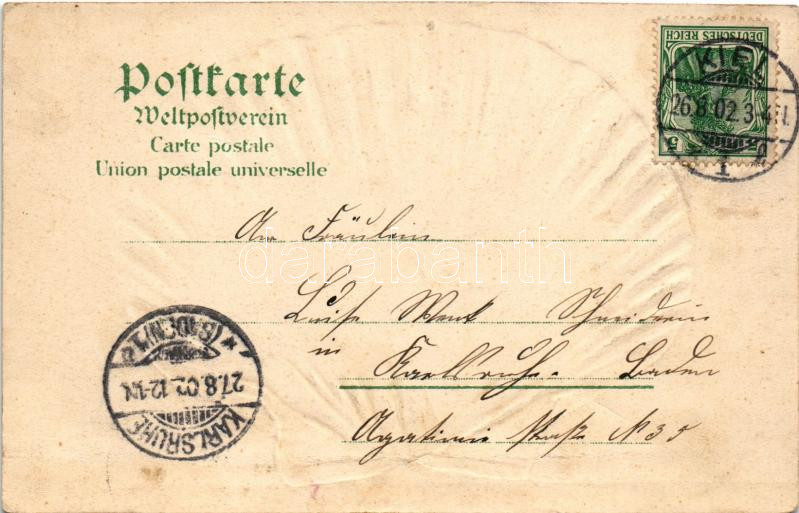 Postkarte
Weltpostverein
Carte postale
Union postale universelle
DEUTSCHES REICH
5 5
KIEL
26.8.02.3-4N.
1
An Fräulein
Luise Schneiderin
in
Karlsruhe. Baden
straße N 35
KARLSRUHE
27.8.02.12-1N.
(BADEN) 1.
darabanth